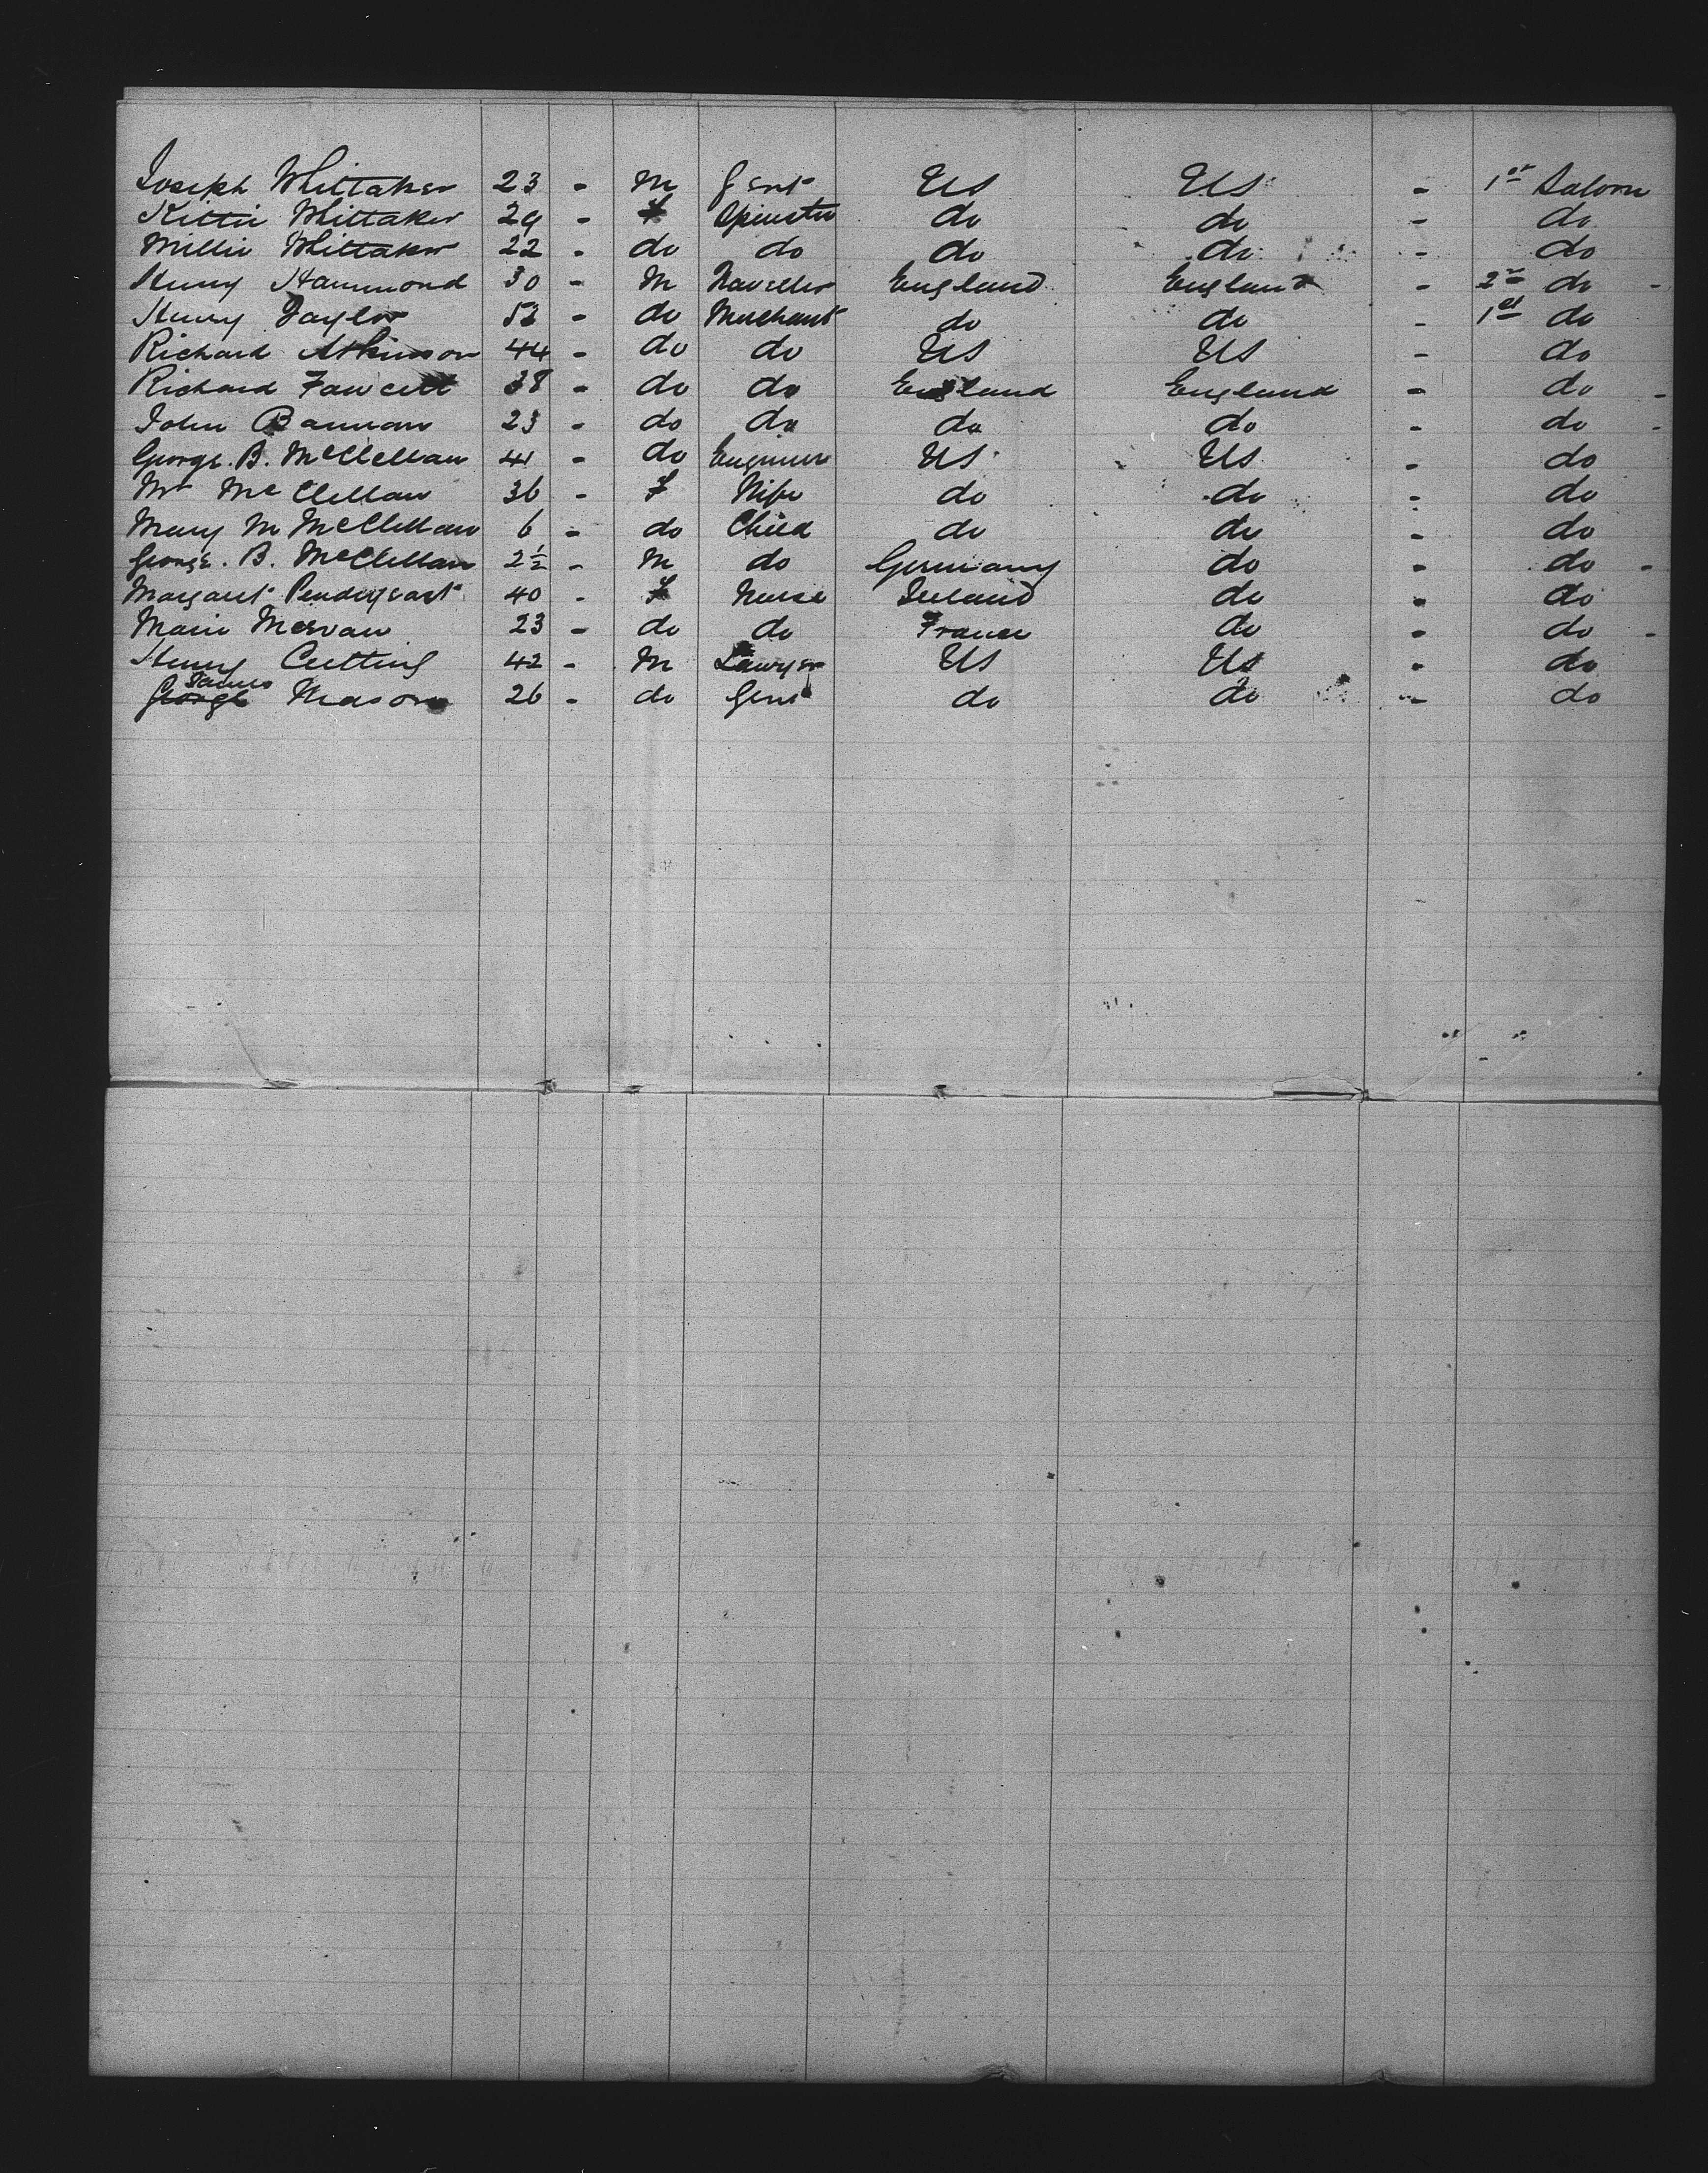 Joseph Whittaker 23 - M Gent US US - 1st Saloon
Kittie Whittaker 29 - f Spinster do do - do
Millie Whittaker 22 - do do do do - do
Henry Hammond 30 - M Traveller England England - 2nd do -
Henry Taylor 53 - do Merchant do do - 1st do
Richard Atkinson 44 - do do US US - do
Richard Fawcett 38 - do do England England - do -
John Bannan 23 - do do do do - do -
George. B. McClellan 41 - do Engineer US US - do
Mrs McClellan 36 - f Wife do do - do
Mary M McClellan 6 - do Child do do - do
George. B. McClellan 2½ - M do Germany do - do -
Margaret Pendergast 40 - f Nurse Ireland do - do
Marie 23 - do do France do - do -
Henry Cutting 42 - M Lawyer US US - do
James
George Mason 26 - do Gent do do - do